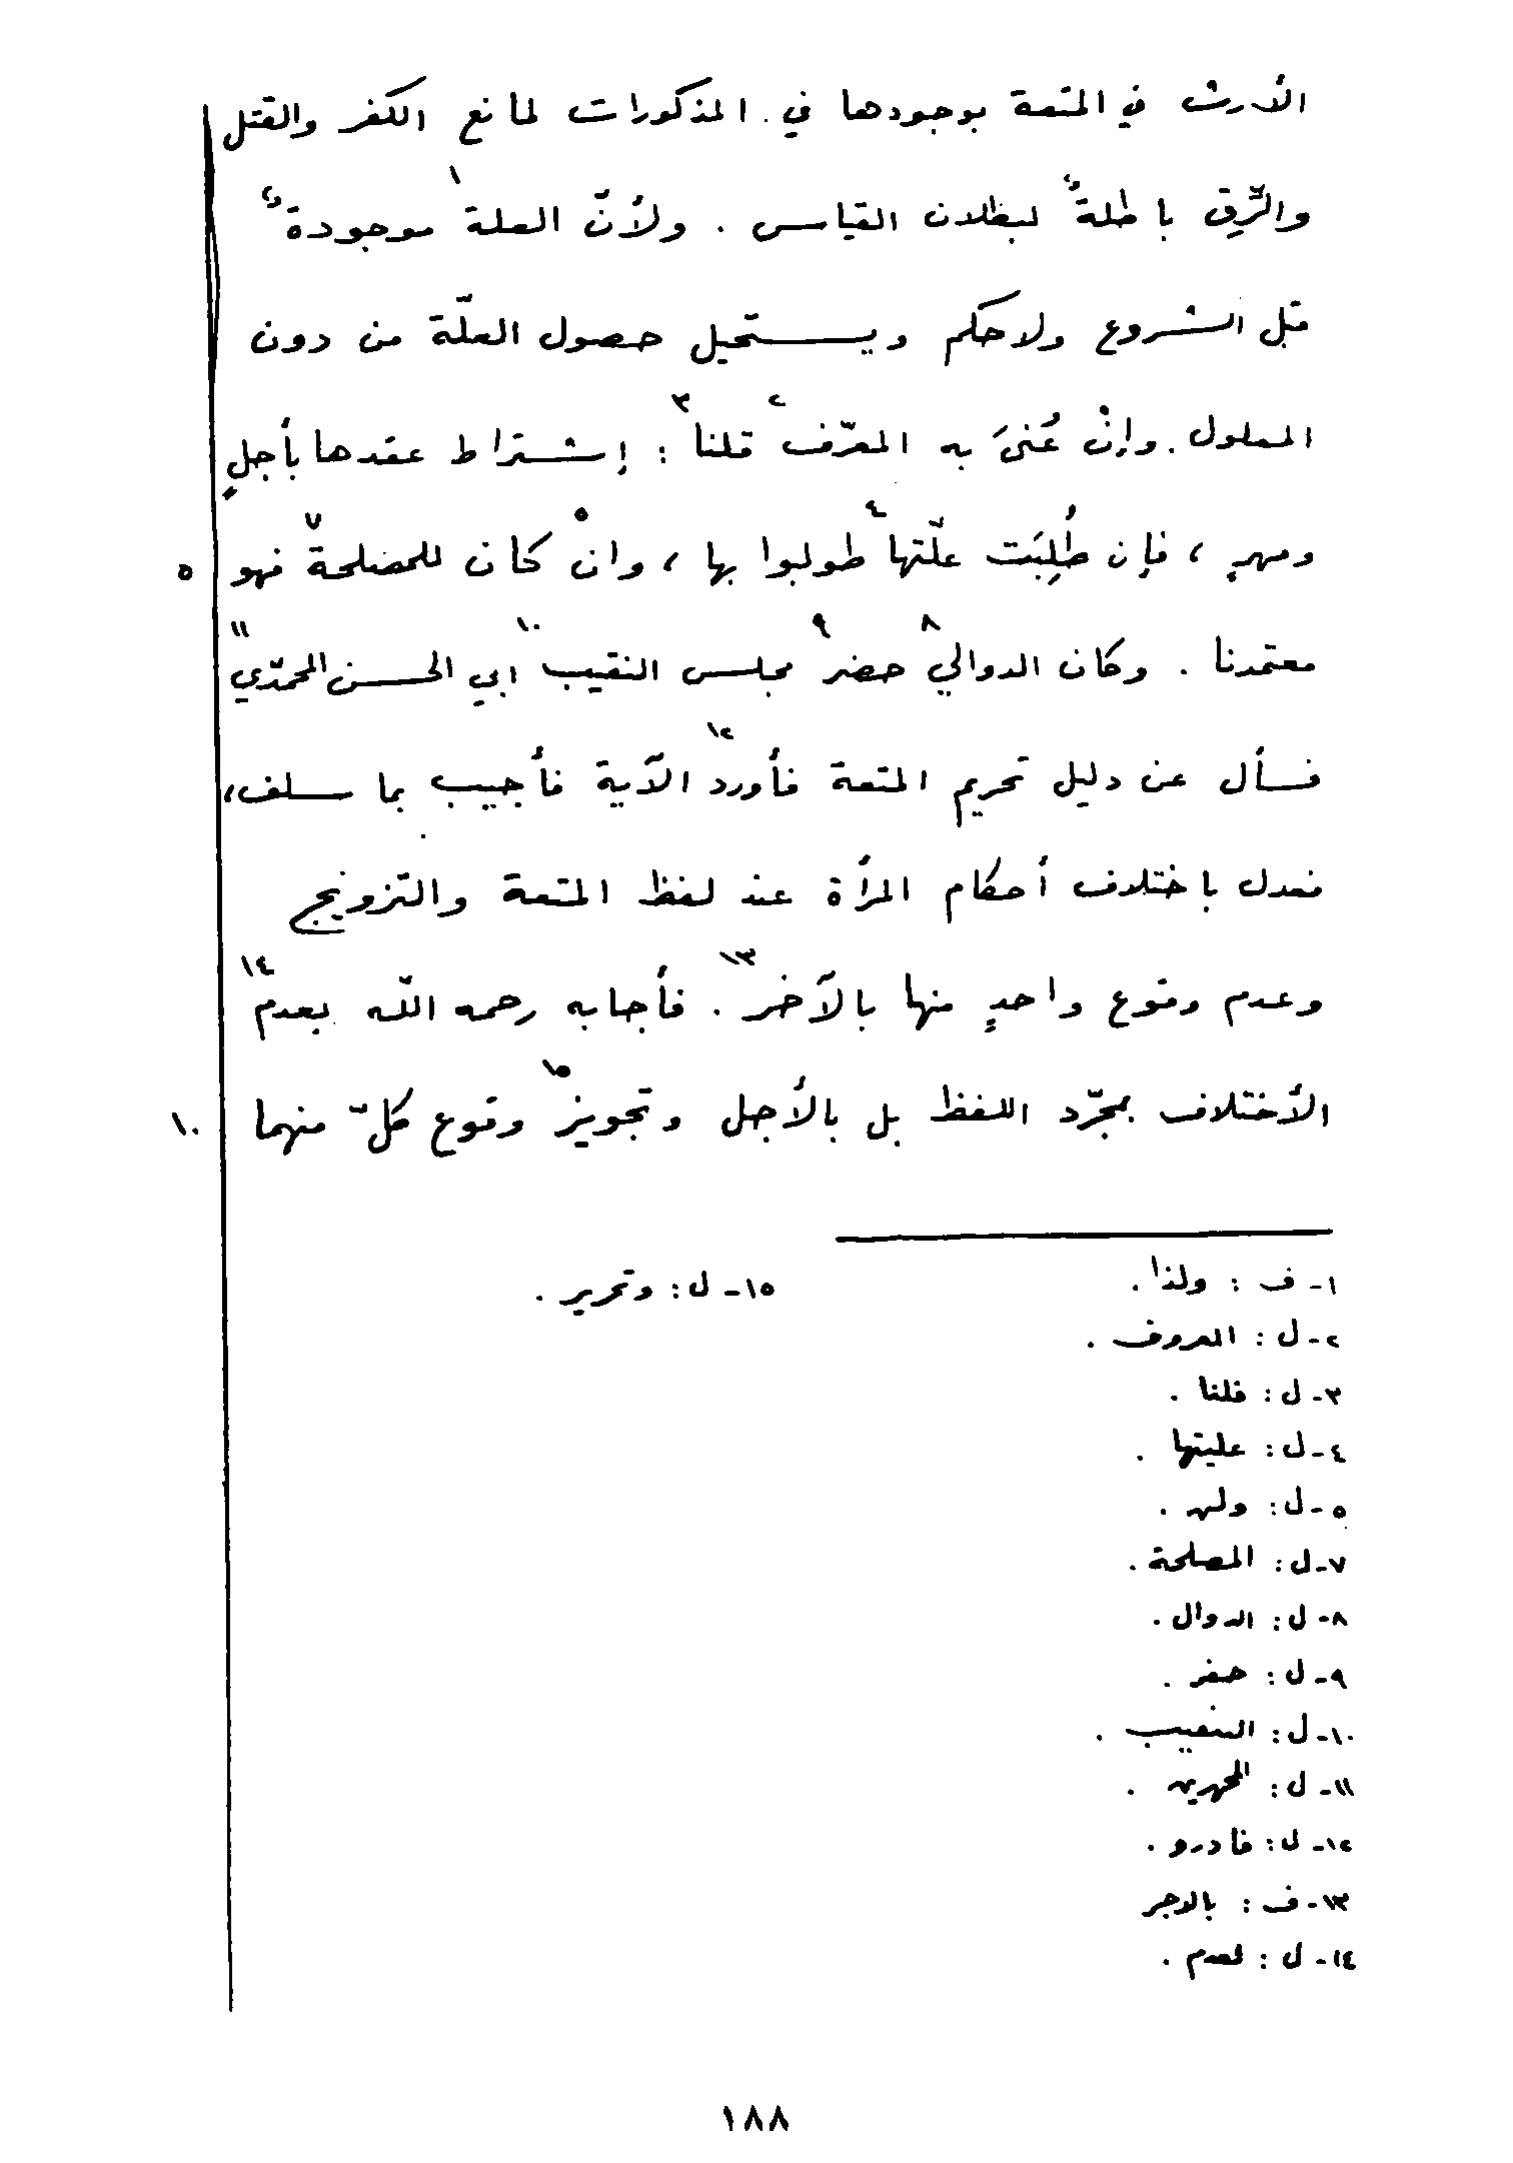 الأرث في المتعة بوجودها في المذكورات لمانع الكفر والقتل
والرّق باطلةٌ لبطلان القياس . ولأنّ ١ العلة موجودةٌ
قبل الشروع ولا حكم ويستحيل حصول العلّة من دون
المعلول . وإنْ عُنىَ به المعرّف ٢ قلنا ٣ : إشتراط عقدها بأجلٍ
ومهرٍ ، فإن طُلِبَت علّتها ٤ طولبوا بها ، وانْ ٥ كان للمصلحة ٧ فهو ٥
معتمدنا . وكان الدوالي ٨ حضر ٩ مجلس النقيب ١٠ ابي الحسن المحمدّي ١١
فسأل عن دليل تحريم المتعة فأورد ١٢ الآية فأجيب بما سلف ،
فعدل باختلاف أحكام المرأة عند لفظ المتعة والتزويج
وعدم وقوع واحدٍ منها بالآخر ١٣ . فأجابه رحمه اللّه بعدم ١٤
الأختلاف بمجرّد اللفظ بل بالأجل وتجويز ١٥ وقوع كلّ منهما ١٠
١ - ف : ولذا .
٢ - ل : المعروف .
٣ - ل : فلنا .
٤ - ل : عليتها .
٥ - ل :
٧ - ل : المصلحة .
٨ - ل : الدوال .
٩ - ل :
١٠ - ل :
١١ - ل :
١٢ - ل : فادرو .
١٣ - ف : بالاجر
١٤ - ل : لعدم .
١٥ - ل : وتحرير .
١٨٨